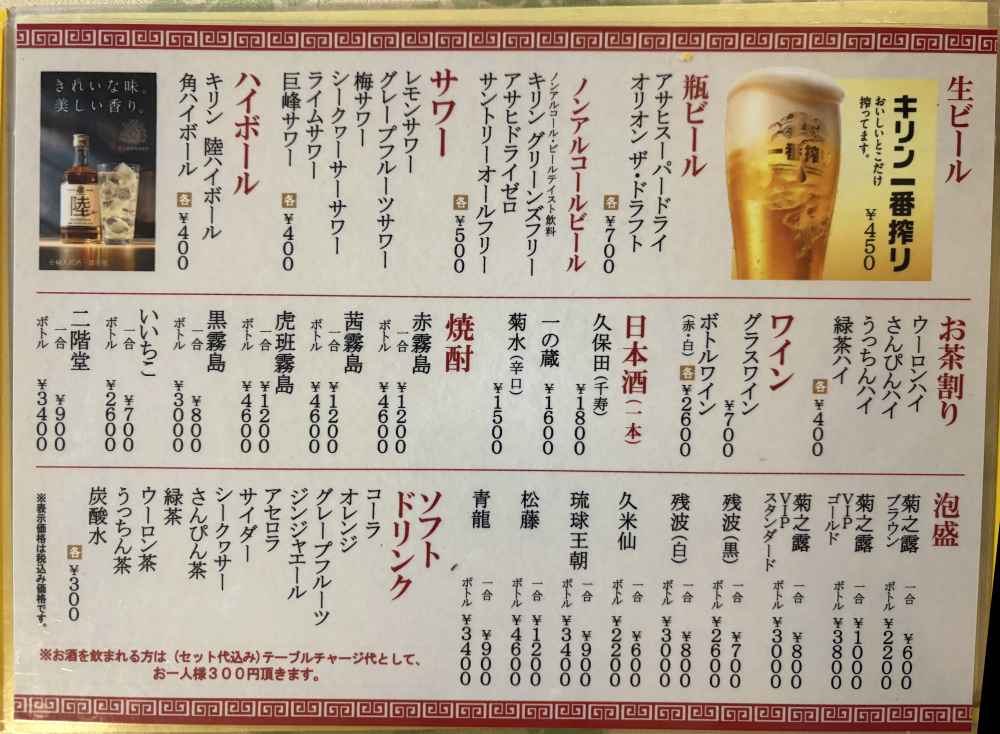 生ビール
キリン一番搾り
おいしいとこだけ
搾ってます。
¥450
一番搾り
瓶ビール
アサヒスーパードライ
オリオン ザ・ドラフト
各 ¥700
ノンアルコールビール
ノンアルコール・ビールテイスト飲料
キリン グリーンズフリー
アサヒドライゼロ
サントリーオールフリー
各 ¥500
サワー
レモンサワー
グレープフルーツサワー
梅サワー
シークヮーサーサワー
ライムサワー
巨峰サワー
各 ¥400
ハイボール
キリン 陸ハイボール
角ハイボール
各 ¥400
きれいな味。
美しい香り。
陸
お茶割り
ウーロンハイ
さんぴんハイ
うっちんハイ
緑茶ハイ
各 ¥400
ワイン
グラスワイン
¥700
ボトルワイン
(赤・白) 各 ¥2600
日本酒(一本)
久保田(千寿)
¥1800
一の蔵
¥1600
菊水(辛口)
¥1500
焼酎
赤霧島
一合 ¥1200
ボトル ¥4600
茜霧島
一合 ¥1200
ボトル ¥4600
虎斑霧島
一合 ¥1200
ボトル ¥4600
黒霧島
一合 ¥800
ボトル ¥3000
いいちこ
一合 ¥700
ボトル ¥2600
二階堂
一合 ¥900
ボトル ¥3400
泡盛
菊之露
ブラウン
一合 ¥600
ボトル ¥2200
菊之露
VIP
ゴールド
一合 ¥1000
ボトル ¥3800
菊之露
VIP
スタンダード
一合 ¥800
ボトル ¥3000
残波(黒)
一合 ¥700
ボトル ¥2600
残波(白)
一合 ¥800
ボトル ¥3000
久米仙
一合 ¥600
ボトル ¥2200
琉球王朝
一合 ¥900
ボトル ¥3400
松藤
一合 ¥1200
ボトル ¥4600
青龍
一合 ¥900
ボトル ¥3400
ソフト
ドリンク
コーラ
オレンジ
グレープフルーツ
ジンジャエール
アセロラ
サイダー
シークヮサー
さんぴん茶
緑茶
ウーロン茶
うっちん茶
炭酸水
各 ¥300
※表示価格は税込み価格です。
※お酒を飲まれる方は(セット代込み)テーブルチャージ代として、
お一人様300円頂きます。